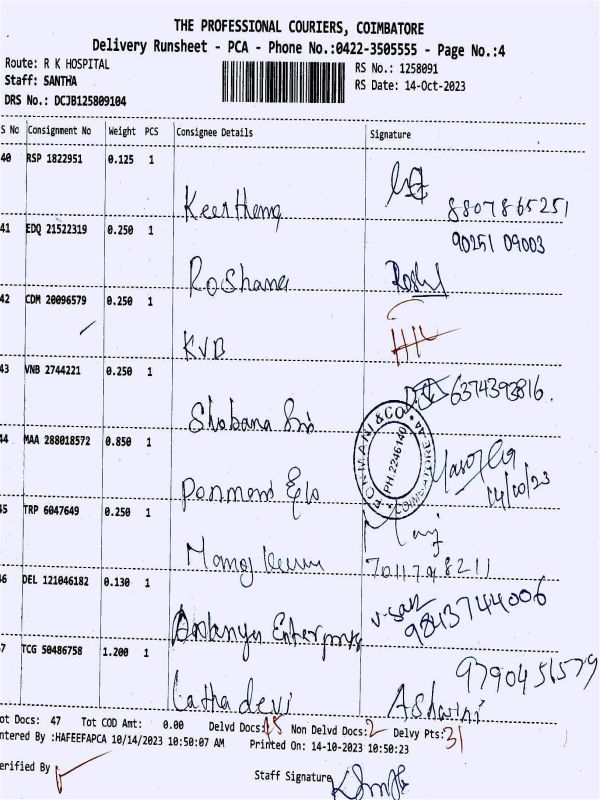 THE PROFESSIONAL COURIERS, COIMBATORE
Delivery Runsheet - PCA - Phone No.:0422-3505555 - Page No.:4
Route: R K HOSPITAL
RS No.: 1258091
Staff: SANTHA
RS Date: 14-Oct-2023
DRS No.: DCJB125809104
S No Consignment No Weight PCS Consignee Details Signature
40 RSP 1822951 0.125 1
Keerthana 8807865251
41 EDQ 21522319 0.250 1 90251 09003
Roshana
42 CDM 20096579 0.250 1
KVB
43 VNB 2744221 0.250 1
6374393816.
Shobana
44 MAA 288018572 0.850 1
PONMANI & CO
PH:2246140
Ponmani & Co
14/10/23
45 TRP 6047649 0.250 1
Manoj Kumar
46 DEL 121046182 0.130 1
9843744006
Enterprises
47 TCG 50486758 1.200 1
9790456579
Latha devi Ashwini
Tot Docs: 47 Tot COD Amt: 0.00 Delvd Docs:45 Non Delvd Docs:2 Delvy Pts:31
Entered By :HAFEEFAPCA 10/14/2023 10:50:07 AM Printed On: 14-10-2023 10:50:23
Verified By
Staff Signature